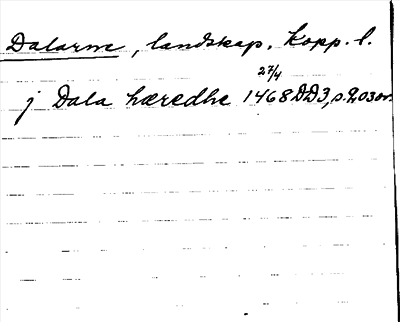 Dalarne, landskap. Kopp. l.
27/4
j Dala hæredhe 1468 DD3, s. 203 or.